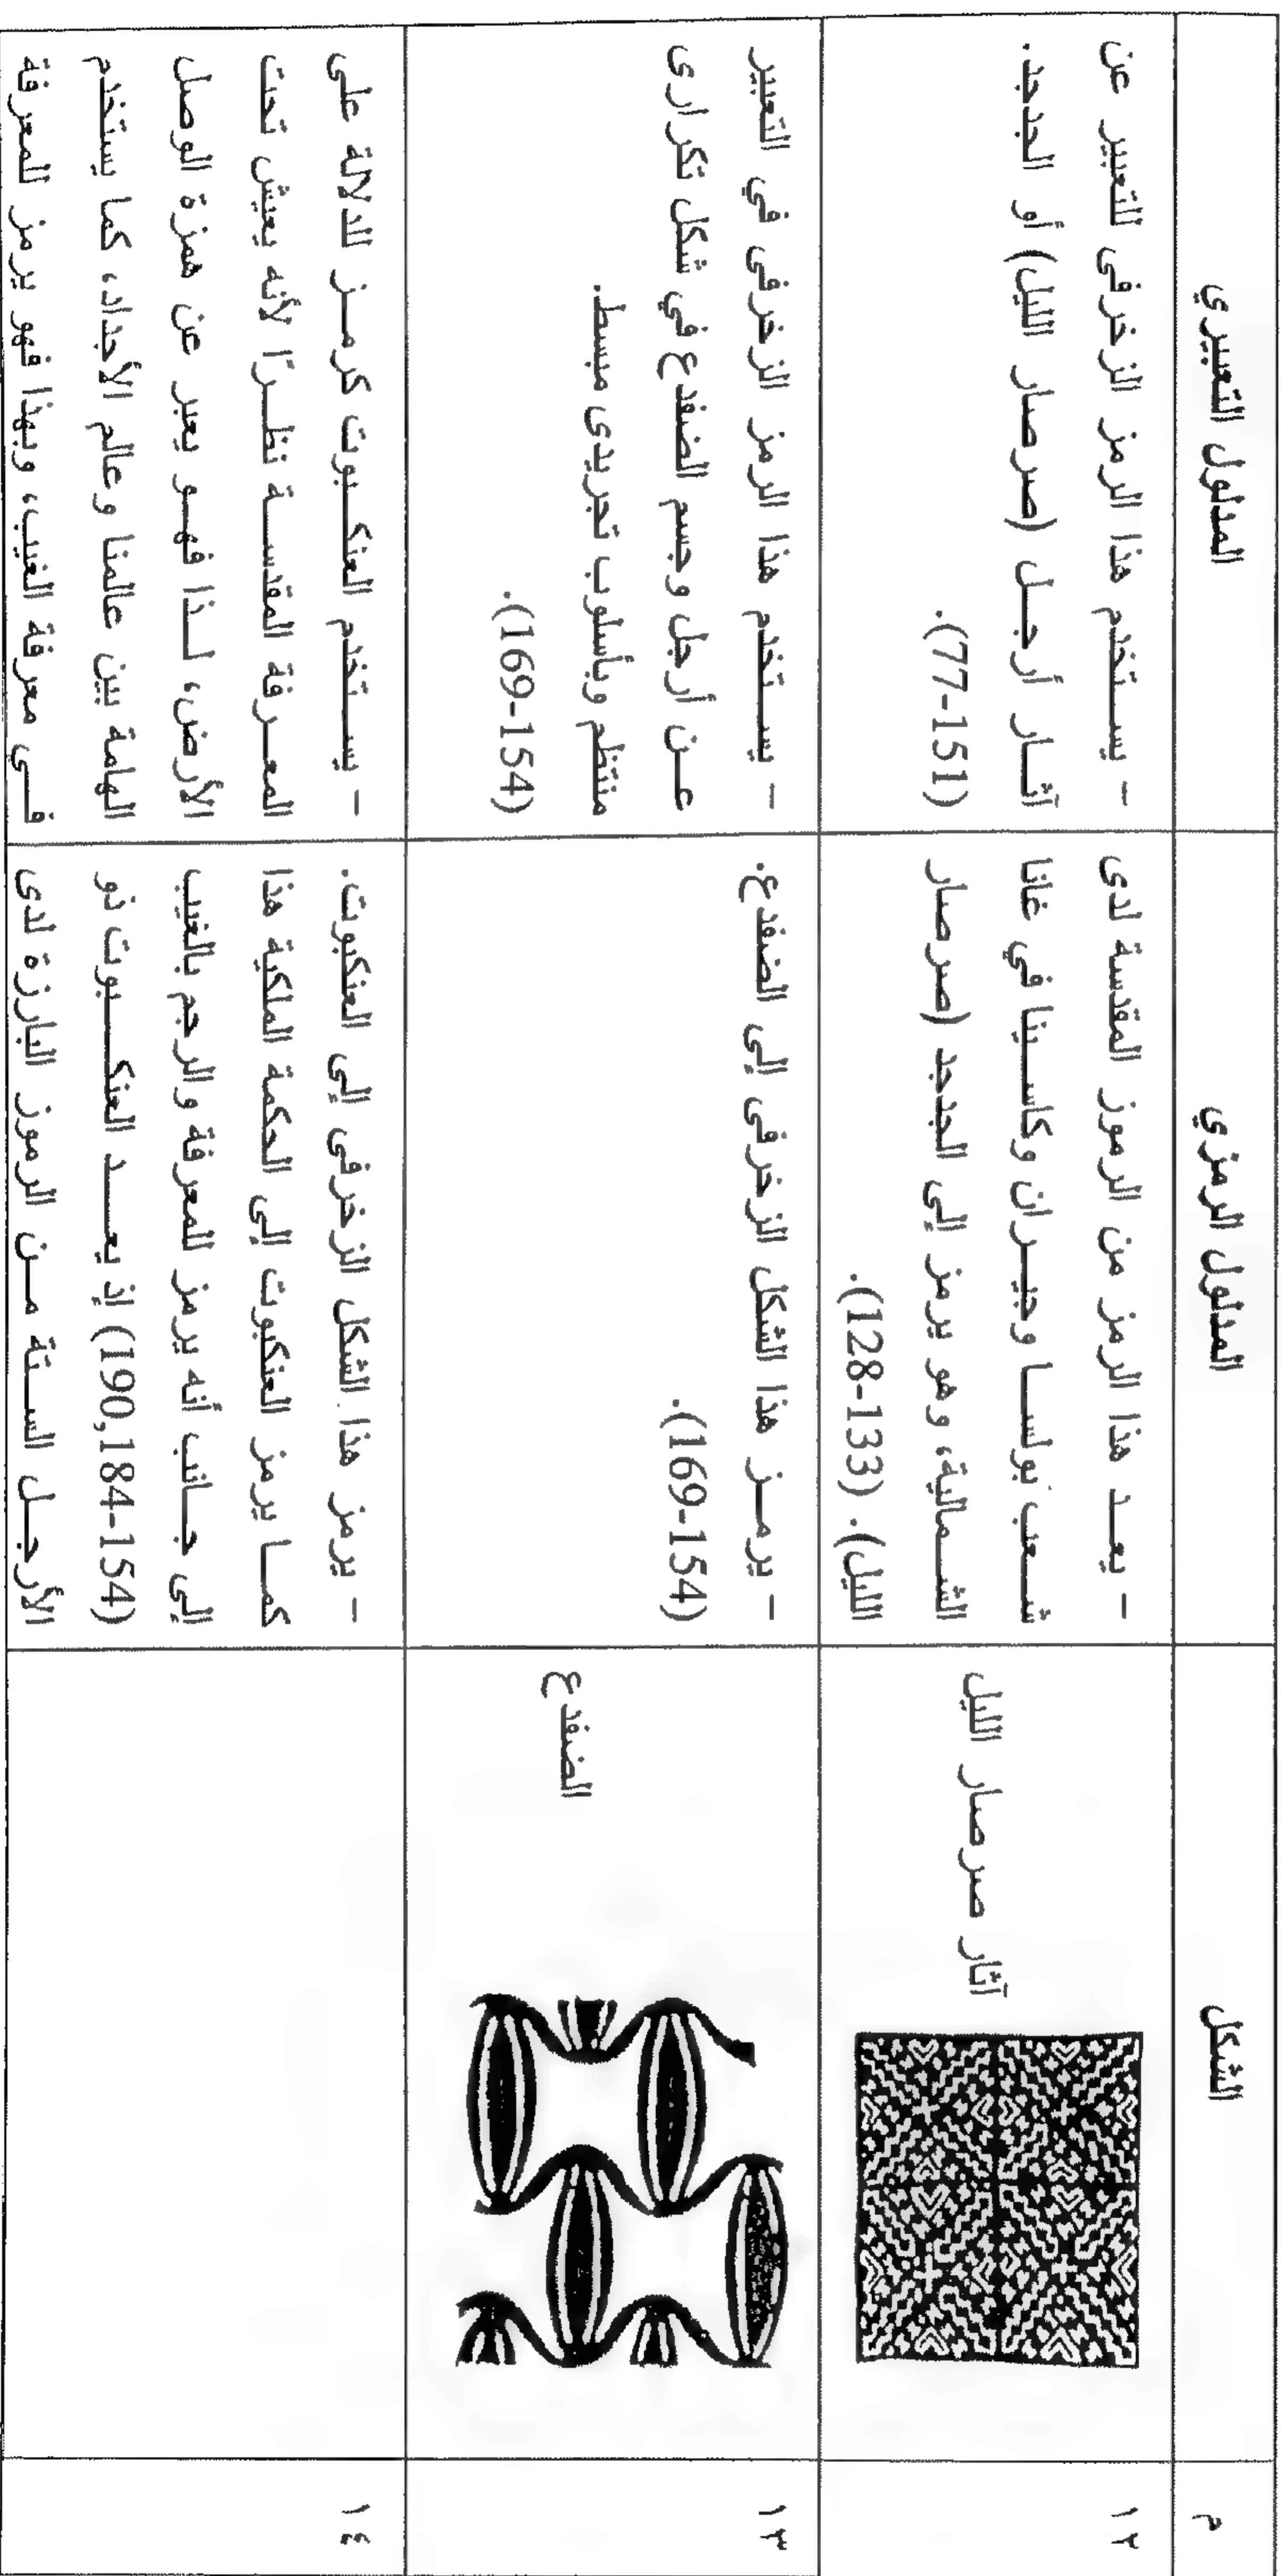 م
الشكل
المدلول الرمزي
المدلول التعبيري
١٢
آثار صرصار الليل
– يعـــد هذا الرمز من الرموز المقدسة لدى
شـــعب بولســـا وجيـــران وكاســـينا في غانا
الشـــمالية، وهو يرمز إلى الجدجد (صرصار
الليل). (133-128).
– يســـتخدم هذا الرمز الزخرفى للتعبير عن
آثـــار أرجـــل (صرصار الليل) أو الجدجد.
(151-77).
١٣
الضفدع
– يرمـــز هذا الشكل الزخرفى إلى الضفدع.
(154-169).
– يســـتخدم هذا الرمز الزخرفى في التعبير
عـــن أرجل وجسم الضفدع في شكل تكرارى
منتظم وبأسلوب تجريدى مبسط.
(154-169).
١٤
– يرمز هذا الشكل الزخرفى إلى العنكبوت.
كمـــا يرمز العنكبوت إلى الحكمة الملكية هذا
إلى جـــانب أنه يرمز للمعرفة والرجم بالغيب
(154-190,184) إذ يعـــد العنكـــبوت ذو
الأرجـــل الســـتة مـــن الرموز البارزة لدى
– يســـتخدم العنكـــبوت كرمـــز للدلالة على
المعـــرفة المقدســـة نظـــرًا لأنه يعيش تحت
الأرض، لـــذا فهـــو يعبر عن همزة الوصل
الهامة بين عالمنا وعالم الأجداد، كما يستخدم
فـــى معرفة الغيب، وبهذا فهو يرمز للمعرفة